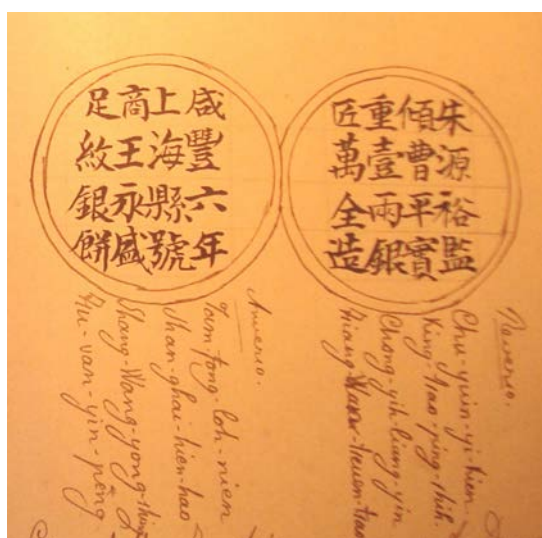 咸豐六年
上海縣號
商王永盛
足紋銀餅
朱源裕監
傾曹平實
重壹兩銀
匠萬全造
Anverso.
fong-loh-nien
Shan-ghai-hien-hao
Shang-Wang-yong-shing
van-yin-pêng
Reverso.
Chu-yuin-yi-kien
King-tsao-ping-shih.
Chong-yih-liang-yin
tsuen-tsao